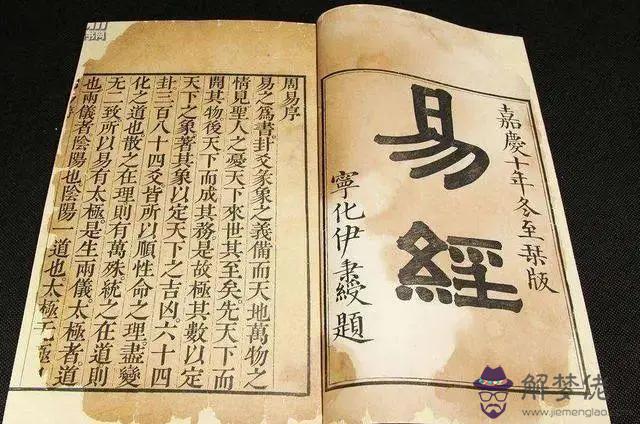 嘉慶十年冬至琹版
易經
寧化伊秉綬題
周易序
易之爲書卦爻彖象之義備而天地萬物之
情見聖人之憂天下來世其至矣。先天下而
開其物後天下而成其務。是故極其數以定
天下之象著其象以定天下之吉凶。六十四
卦三百八十四爻皆所以順性命之理。盡變
化之道也散之在理則有萬殊。統之在道則
无二致所以易有太極。是生兩儀。太極者道
也兩儀者陰陽也陰陽一道也太極无極
解梦佬
www.jiemenglao.com